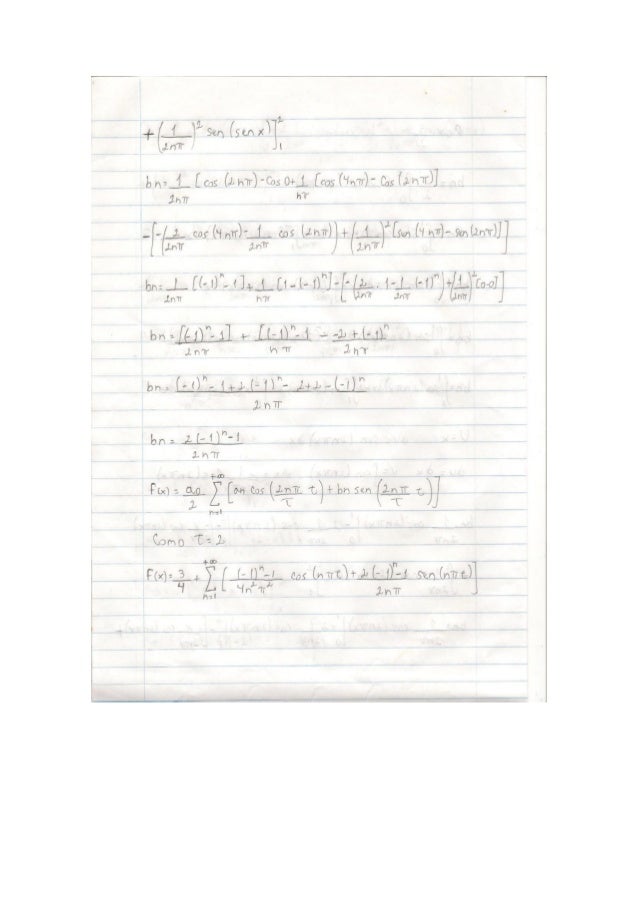 + (1/2nπ)² sen (senx)]₁²
bn= 1/2nπ [cos (2nπ)-Cos 0+ 1/nπ [cos (4nπ)- Cos (2nπ)]
-[-(2/2nπ cos (4nπ)- 1/2nπ cos (2nπ)) + (1/2nπ)² [sen (4nπ)- sen (2nπ)]]
bn= 1/2nπ [(-1)ⁿ-1]+ 1/nπ [1-(-1)ⁿ]-[-(2/2nπ . 1- 1/2nπ (-1)ⁿ)+(1/2nπ)² [0-0]]
bn = [(-1)ⁿ-1]/2nπ + [(-1)ⁿ-1/nπ - -2+(-1)ⁿ/2nπ
bn= (-1)ⁿ-1+2(-1)ⁿ-2+2-(-1)ⁿ/2nπ
bn= 2(-1)ⁿ-1/2nπ
F(x) = a0/2 +∞ Σ n=1 [an cos (2nπ/τ t)+ bn sen (2nπ/τ t)]
Como τ=2
F(x)= 3/4 + +∞ Σ n=1 [(-1)ⁿ-1/4n²π² cos (nπt)+ 2(-1)ⁿ-1/2nπ sen (nπt)]